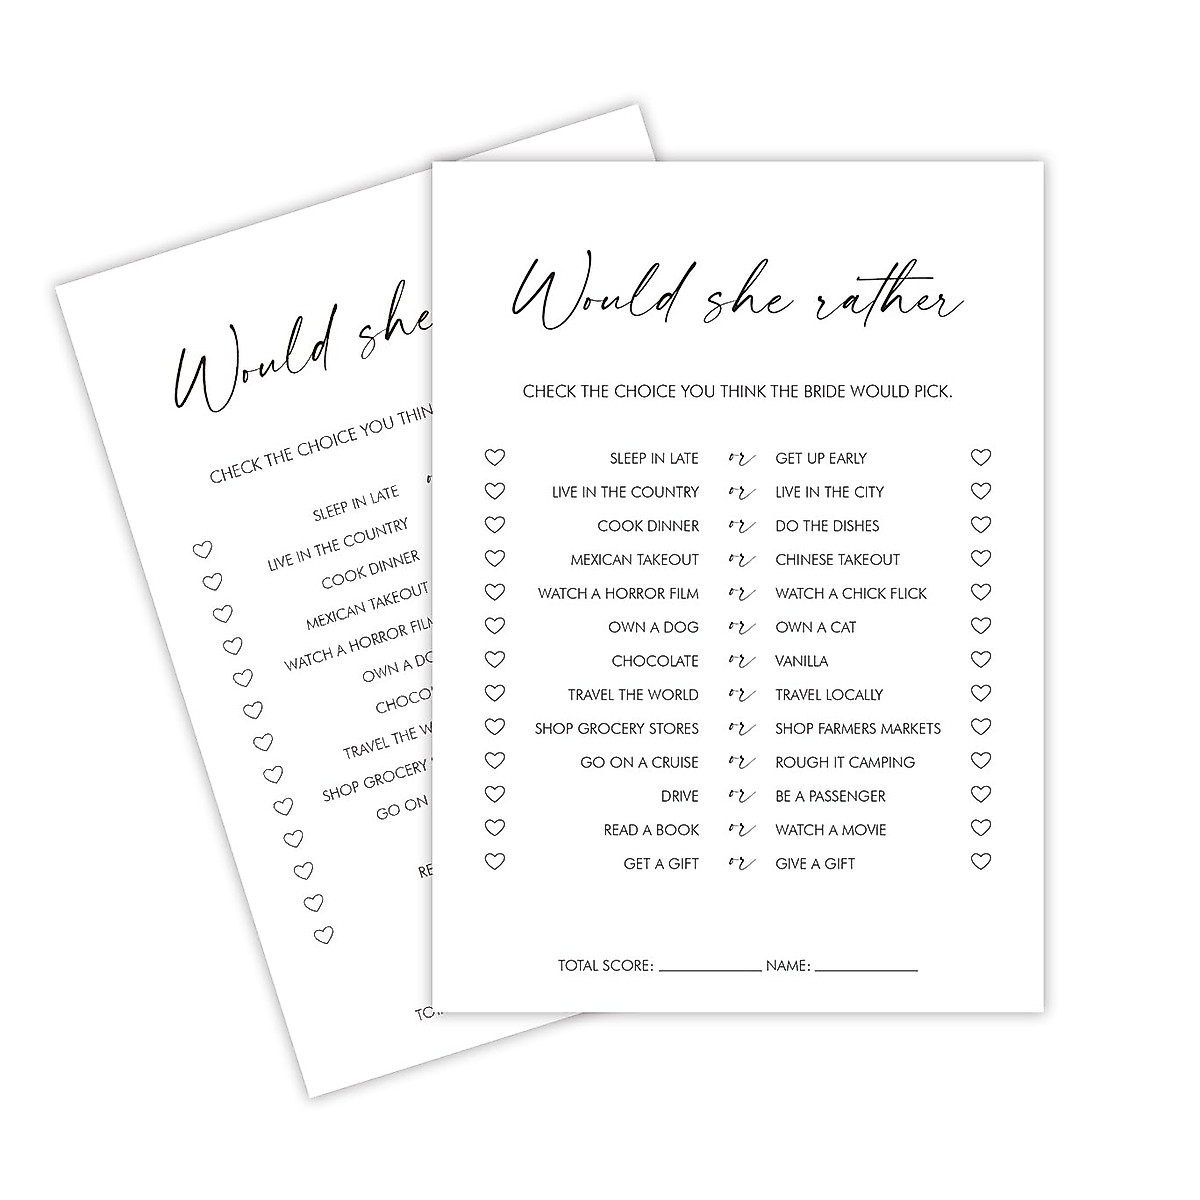 Would she
CHECK THE CHOICE YOU THIN
SLEEP IN LATE
LIVE IN THE COUNTRY
COOK DINNER
MEXICAN TAKEOUT
WATCH A HORROR FILM
OWN A DO
CHOCO
TRAVEL THE W
SHOP GROCERY
GO ON
RE
TOT
Would she rather
CHECK THE CHOICE YOU THINK THE BRIDE WOULD PICK.
SLEEP IN LATE or GET UP EARLY
LIVE IN THE COUNTRY or LIVE IN THE CITY
COOK DINNER or DO THE DISHES
MEXICAN TAKEOUT or CHINESE TAKEOUT
WATCH A HORROR FILM or WATCH A CHICK FLICK
OWN A DOG or OWN A CAT
CHOCOLATE or VANILLA
TRAVEL THE WORLD or TRAVEL LOCALLY
SHOP GROCERY STORES or SHOP FARMERS MARKETS
GO ON A CRUISE or ROUGH IT CAMPING
DRIVE or BE A PASSENGER
READ A BOOK or WATCH A MOVIE
GET A GIFT or GIVE A GIFT
TOTAL SCORE: ____________ NAME: ____________